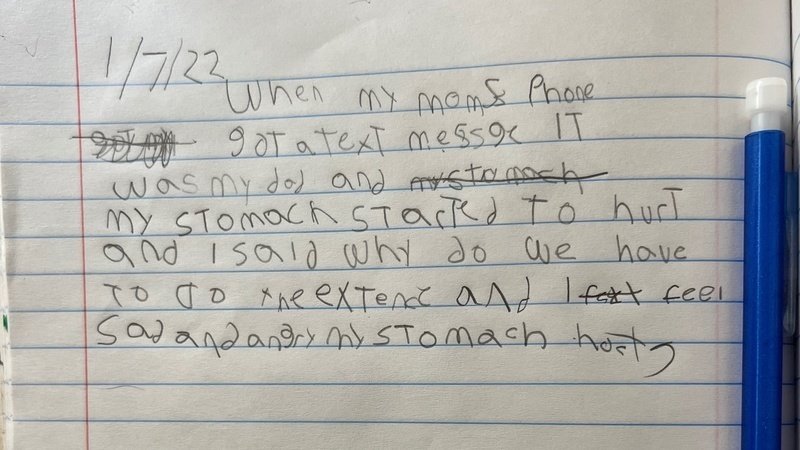 1/7/22
When my moms Phone
got a text messge IT
was my dad and my stomach
my stomach started to hurt
and I said why do we have
to do the extenct and I felt feel
sad and angry my stomach hurts